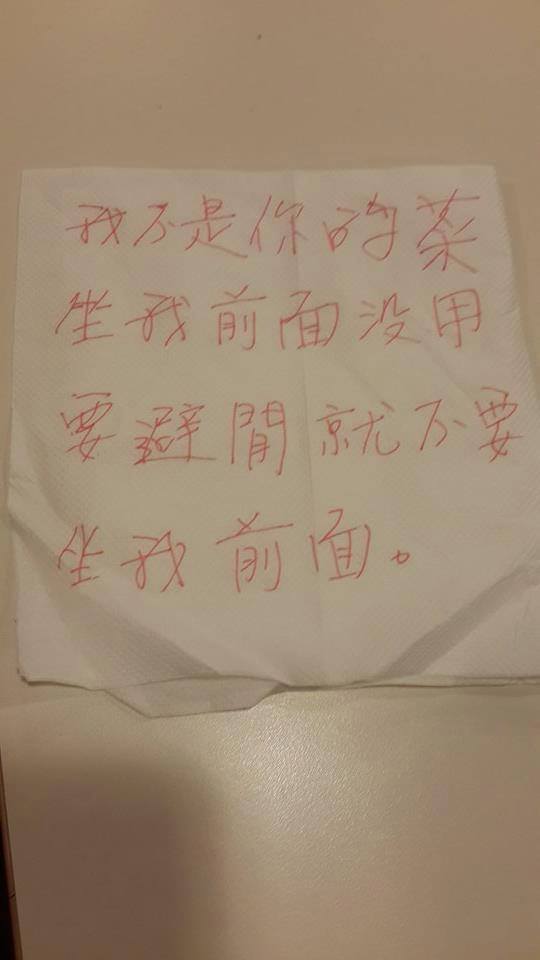 我不是你的菜
坐我前面沒用
要避開就不要
坐我前面。